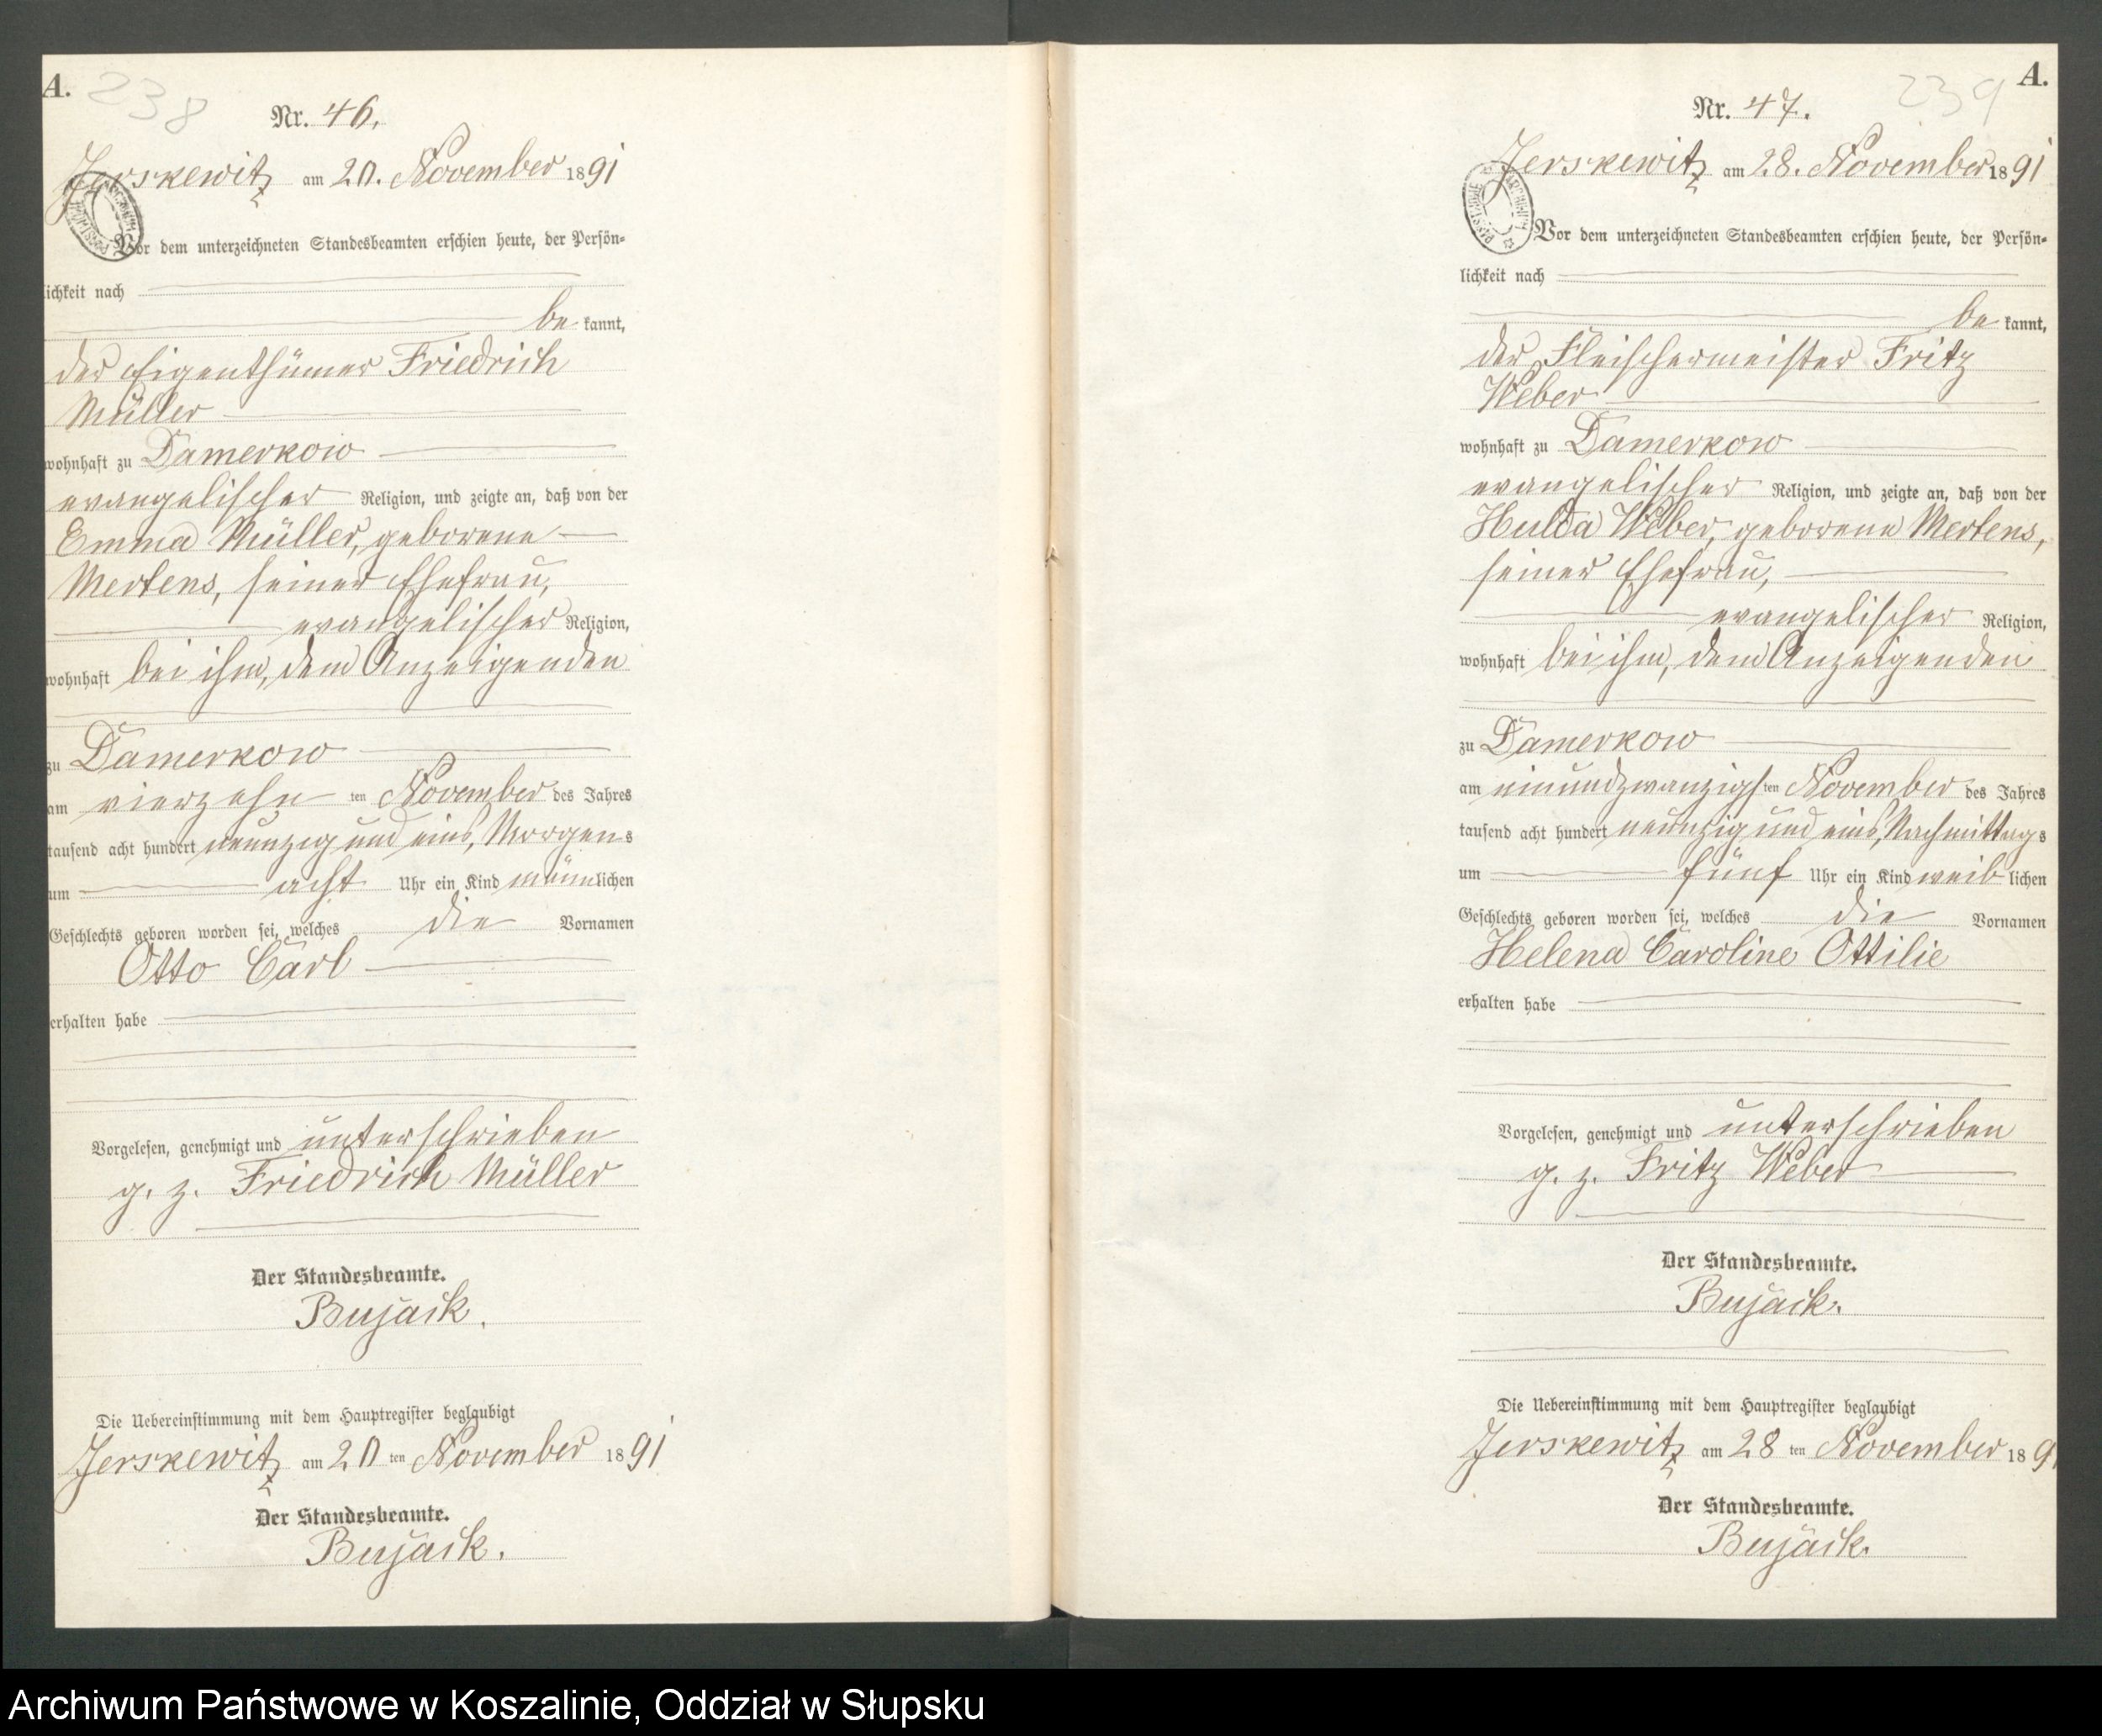 A.
238
Nr. 46.
Jerskewitz am 20. November 1891
Vor dem unterzeichneten Standesbeamten erschien heute, der Persön-
lichkeit nach
be kannt,
der Eigenthümer Friedrich
Müller
wohnhaft zu Damerkow
evangelischer Religion, und zeigte an, daß von der
Emma Müller, geborene
Mertens, seiner Ehefrau,
evangelischer Religion,
wohnhaft bei ihm, dem Anzeigenden
zu Damerkow
am vierzehn ten November des Jahres
tausend acht hundert neunzig und eins, Morgens
um acht Uhr ein Kind männlichen
Geschlechts geboren worden sei, welches die Vornamen
Otto Carl
erhalten habe
Vorgelesen, genehmigt und unterschrieben
g. z. Friedrich Müller
Der Standesbeamte.
Bujack.
Die Uebereinstimmung mit dem Hauptregister beglaubigt
Jerskewitz am 20 ten November 1891
Der Standesbeamte.
Bujack.
A.
239
Nr. 47.
Jerskewitz am 28. November 1891
Vor dem unterzeichneten Standesbeamten erschien heute, der Persön-
lichkeit nach
be kannt,
der Fleischermeister Fritz
Weber
wohnhaft zu Damerkow
evangelischer Religion, und zeigte an, daß von der
Hulda Weber, geborene Mertens,
seiner Ehefrau,
evangelischer Religion,
wohnhaft bei ihm, dem Anzeigenden
zu Damerkow
am einundzwanzigsten November des Jahres
tausend acht hundert neunzig und eins, Nachmittags
um fünf Uhr ein Kind weiblichen
Geschlechts geboren worden sei, welches die Vornamen
Helena Caroline Ottilie
erhalten habe
Vorgelesen, genehmigt und unterschrieben
g. z. Fritz Weber
Der Standesbeamte.
Bujack.
Die Uebereinstimmung mit dem Hauptregister beglaubigt
Jerskewitz am 28 ten November 1891
Der Standesbeamte.
Bujack.
Archiwum Państwowe w Koszalinie, Oddział w Słupsku